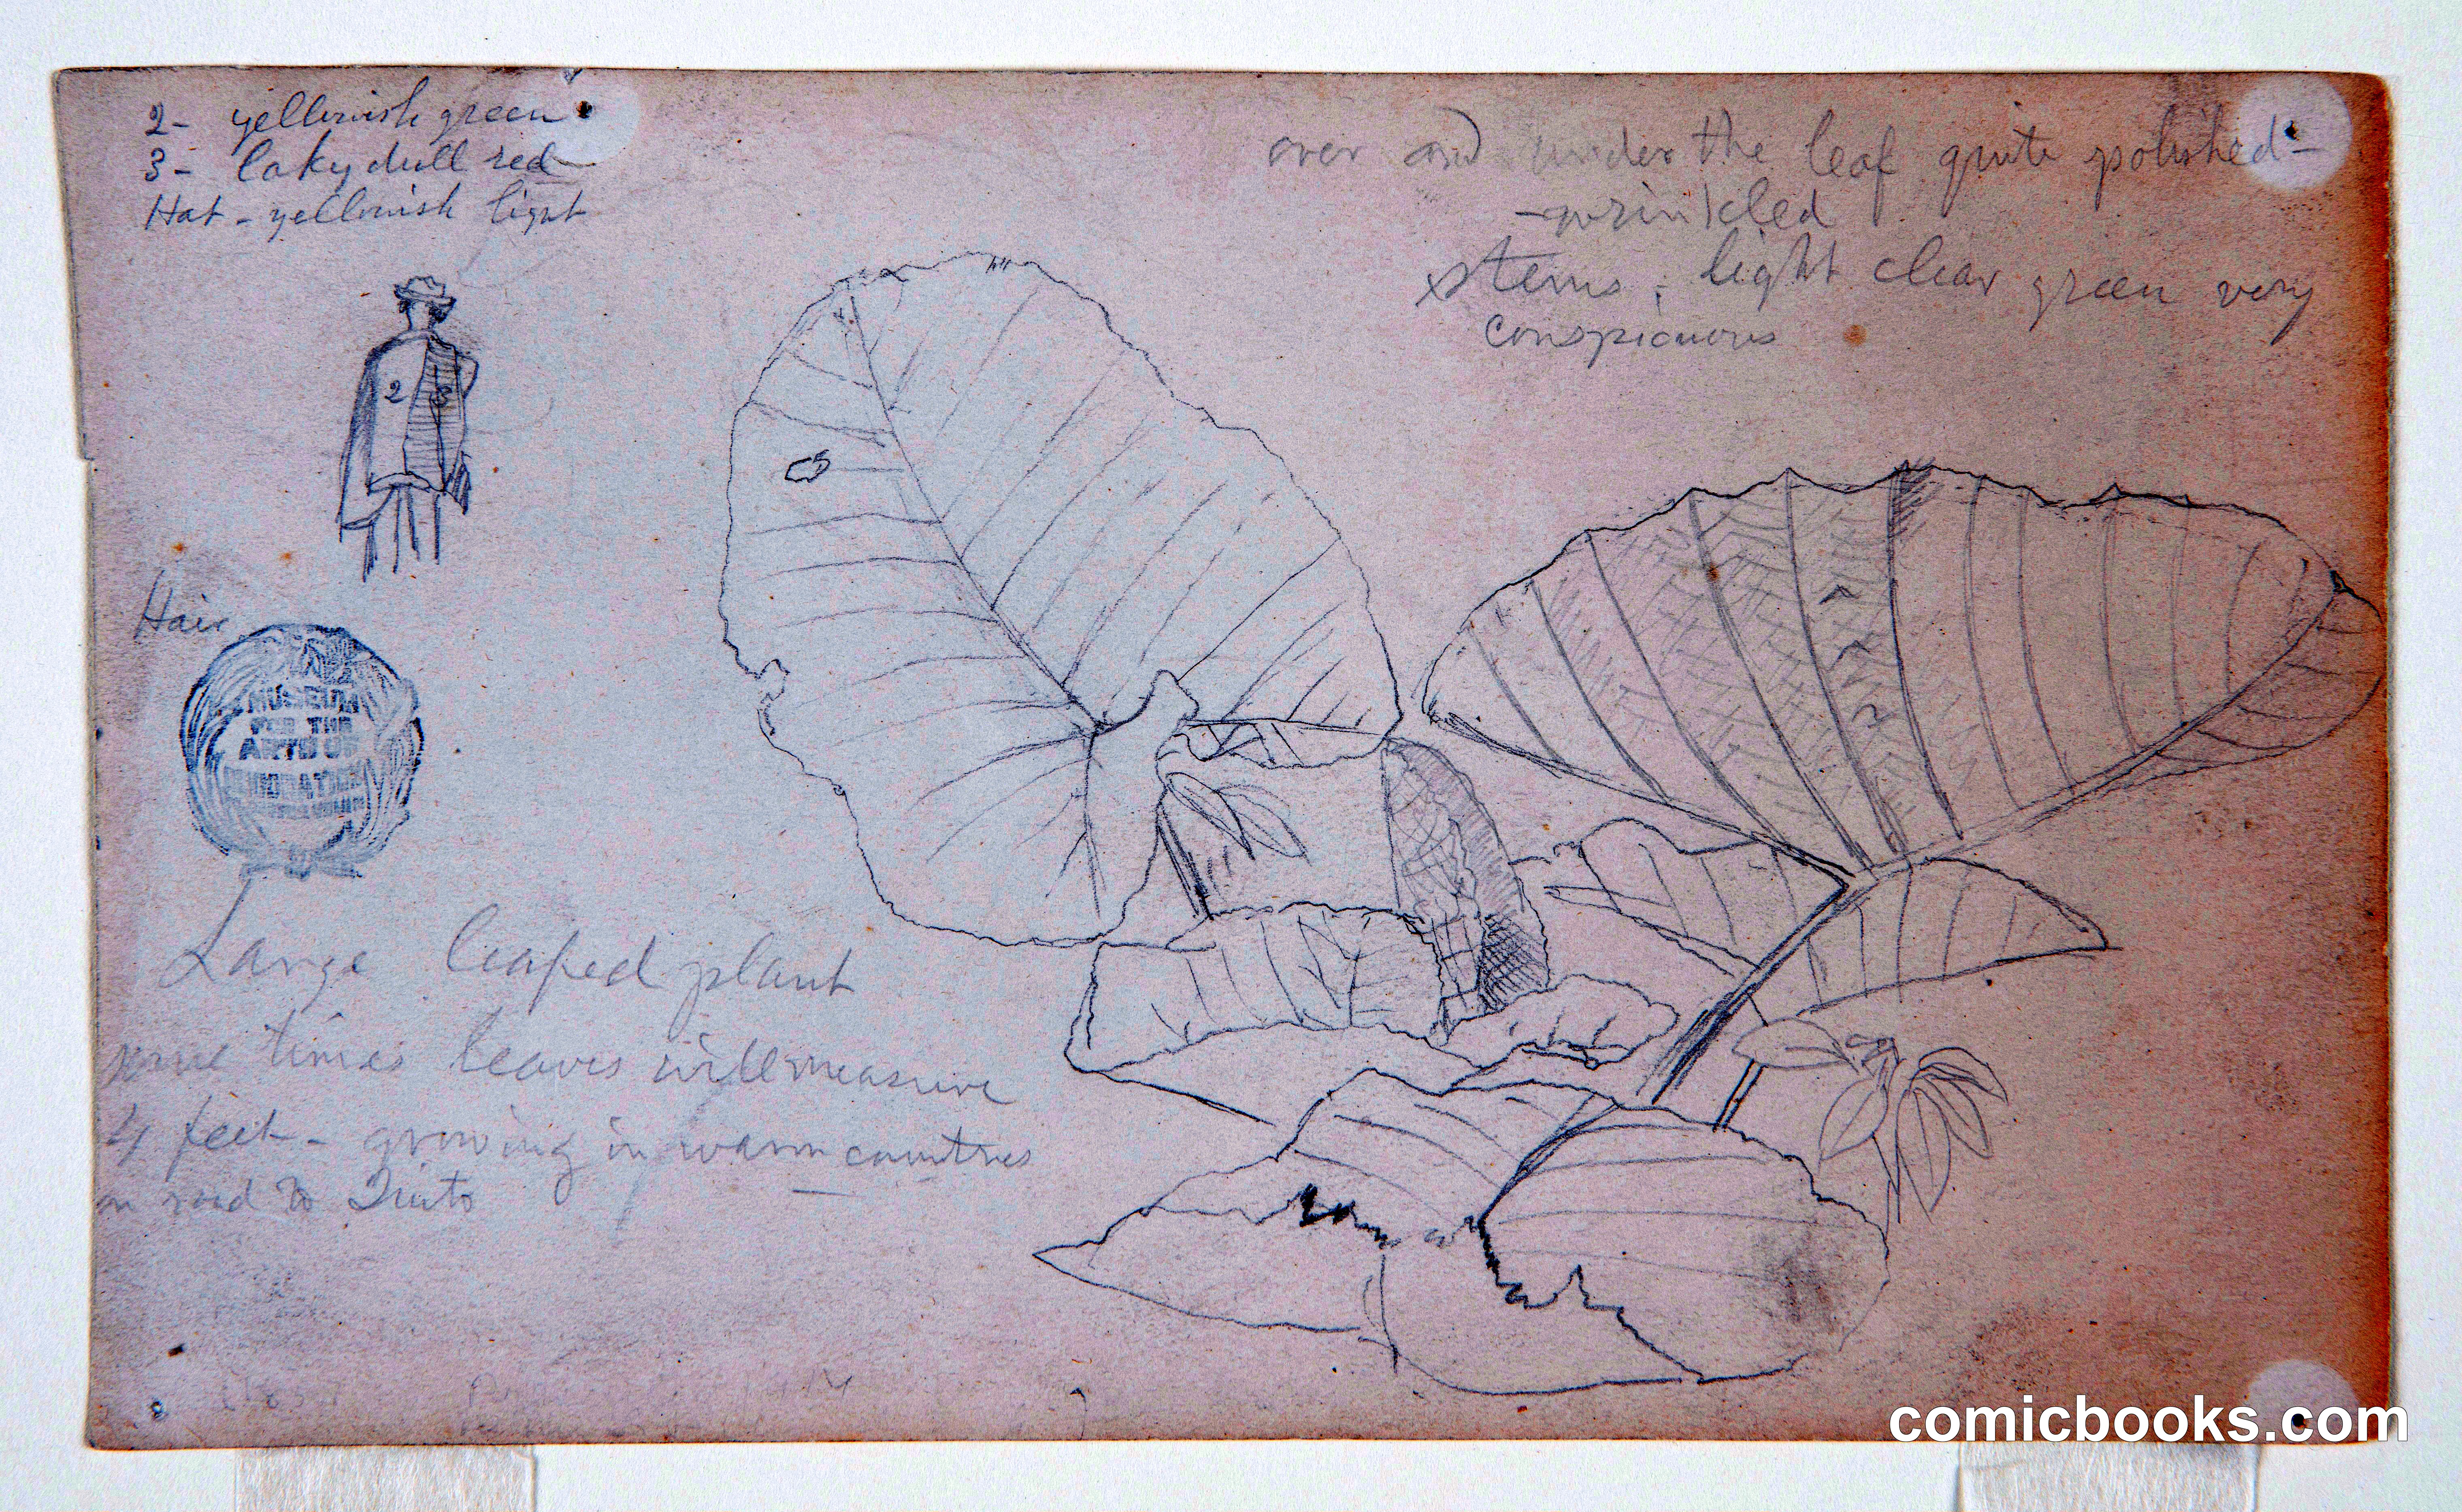 2- yellowish green
3- laky dull red
Hat - yellowish light
2 3
Hair
MUSEUM
FOR THE
ARTS OF
DECORATION
over and under the leaf quite polished-
-wrinkled
stems; light clear green very
conspicuous
Large leafed plant
some times leaves will measure
4 feet - growing in warm countries
on road to Quito
comicbooks.com